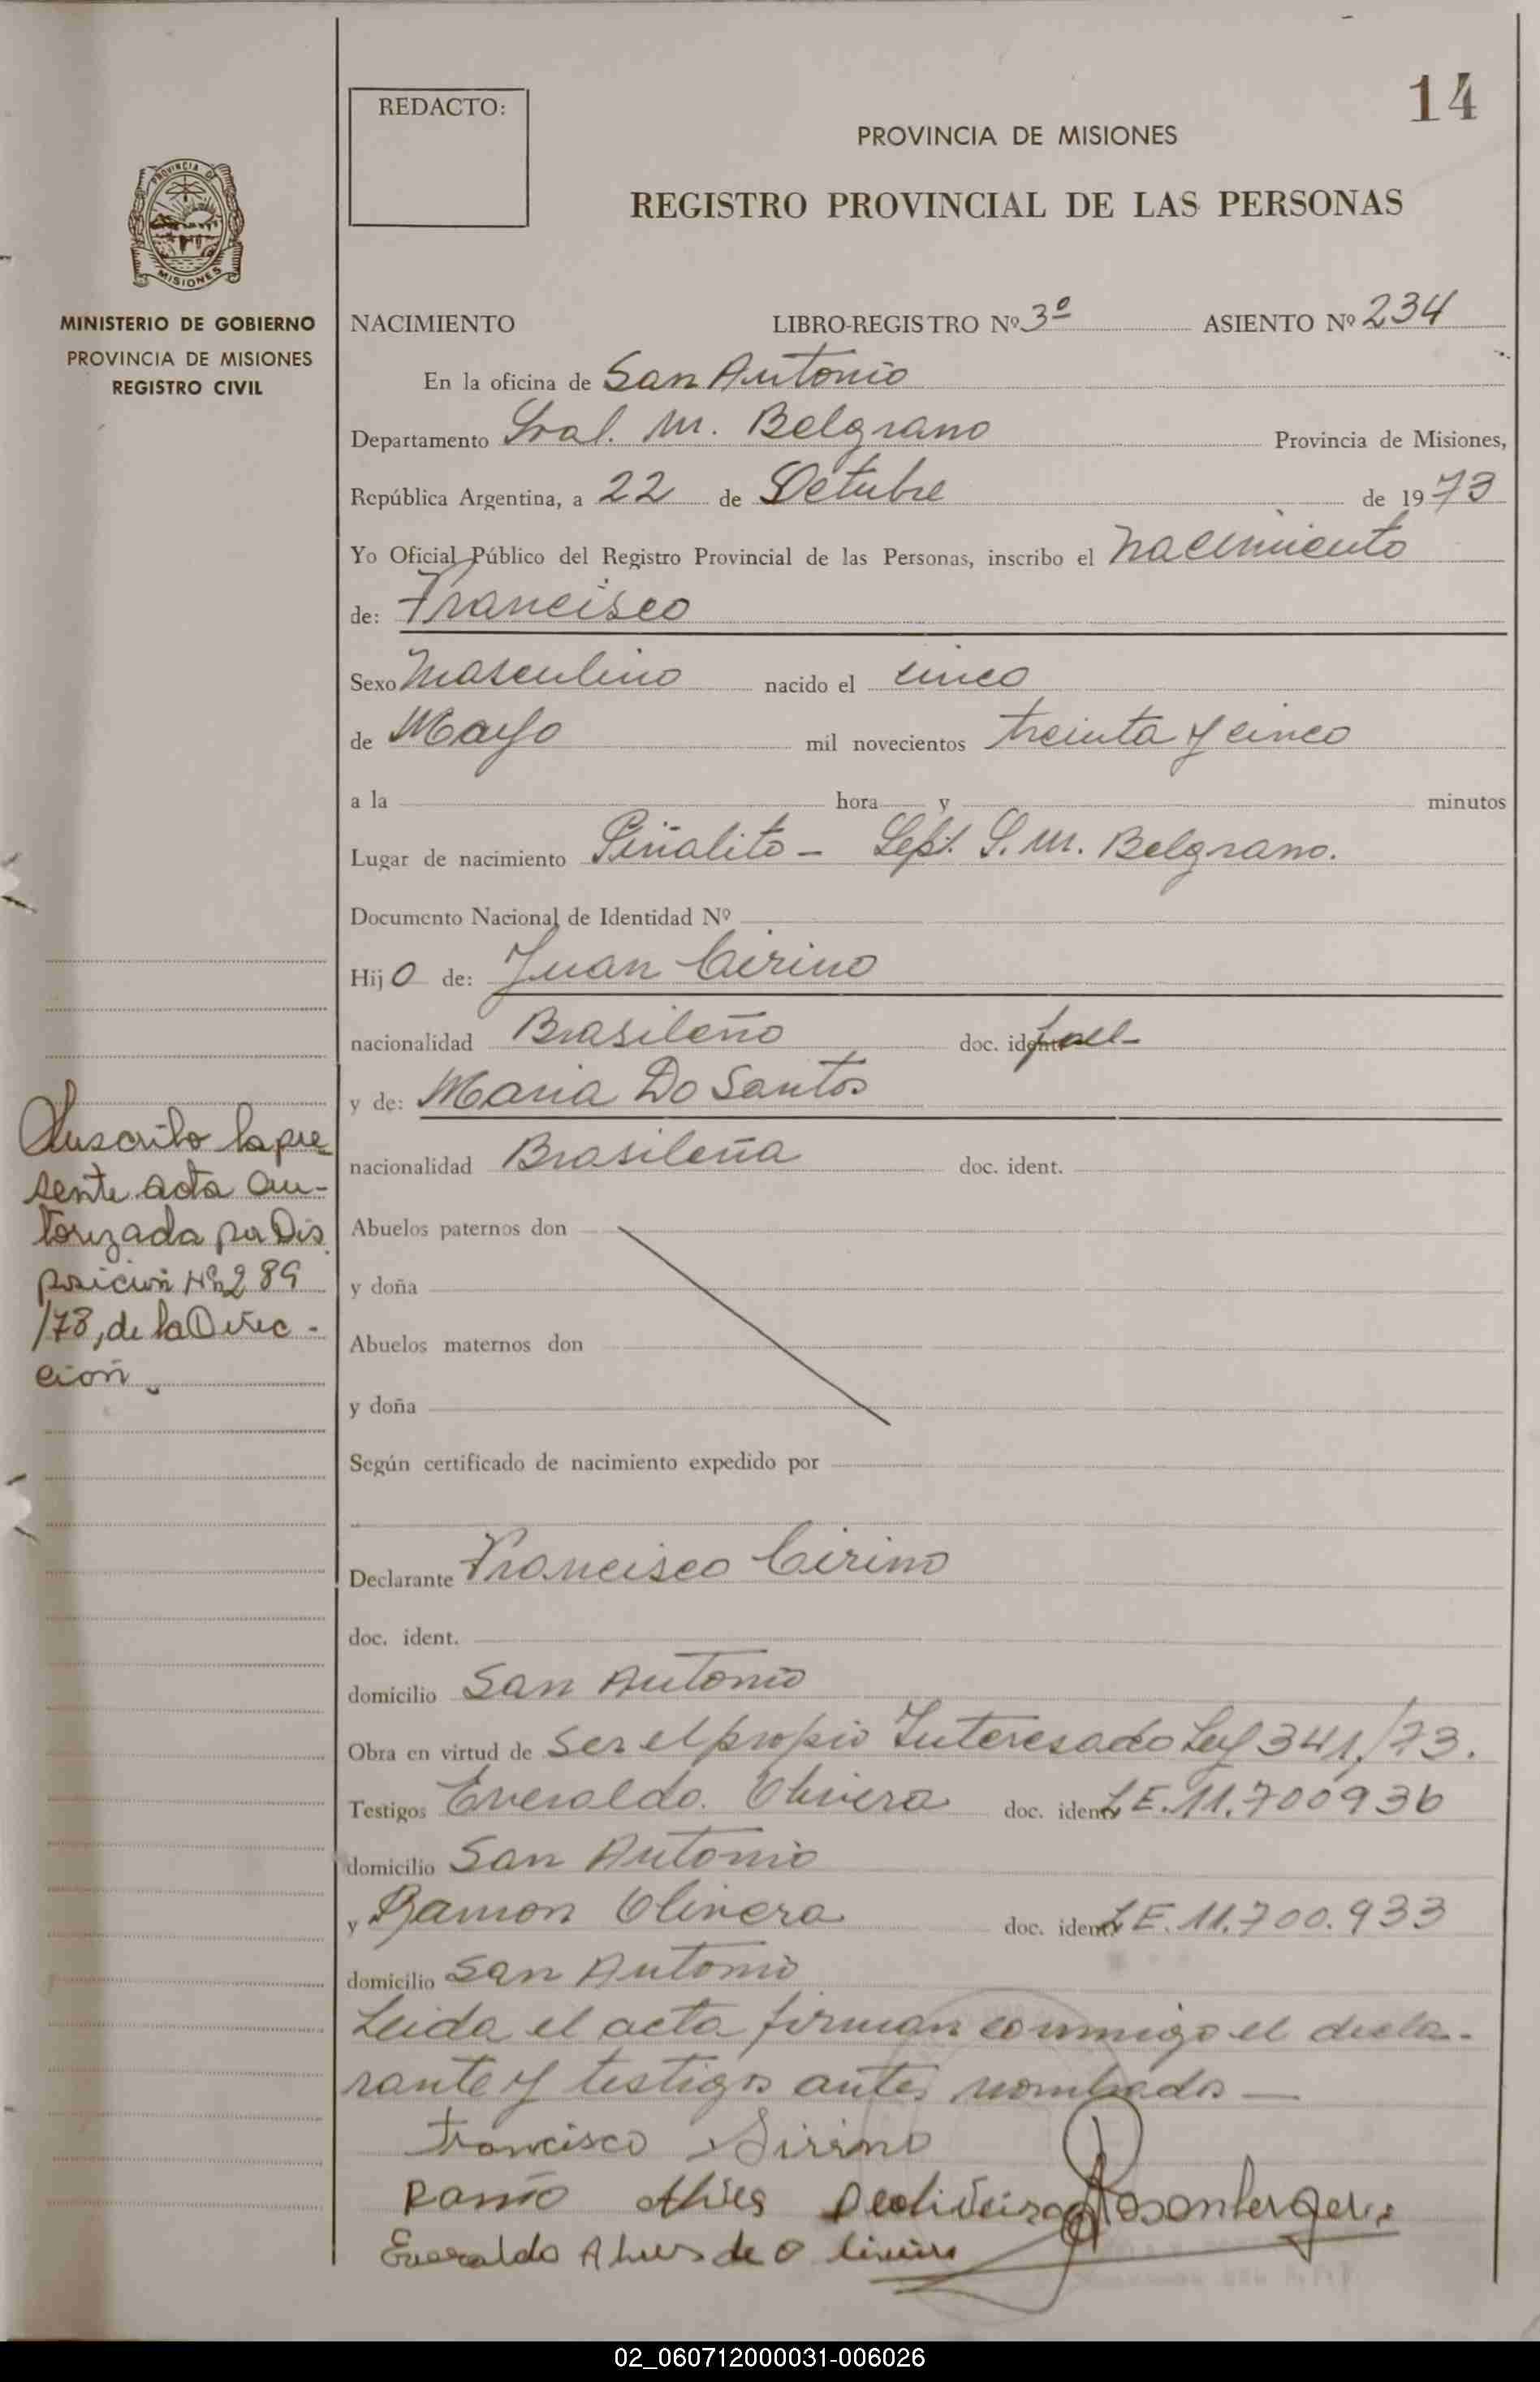 14
REDACTO:
PROVINCIA DE MISIONES
REGISTRO PROVINCIAL DE LAS PERSONAS
PROVINCIA DE
MISIONES
MINISTERIO DE GOBIERNO
PROVINCIA DE MISIONES
REGISTRO CIVIL
NACIMIENTO LIBRO-REGISTRO Nº 3º ASIENTO Nº 234
En la oficina de San Antonio
Departamento Gral. M. Belgrano Provincia de Misiones,
República Argentina, a 22 de Octubre de 1973
Yo Oficial Público del Registro Provincial de las Personas, inscribo el nacimiento
de: Francisco
Sexo Masculino nacido el cinco
de Mayo mil novecientos treinta y cinco
a la hora y minutos
Lugar de nacimiento Piñalito - Dept. G. M. Belgrano.
Documento Nacional de Identidad Nº
Hijo de: Juan Cirino
nacionalidad Brasileño doc. ident.
y de: Maria Do Santos
nacionalidad Brasileña doc. ident.
Abuelos paternos don
y doña
Abuelos maternos don
y doña
Según certificado de nacimiento expedido por
Suscribo la pre
sente acta au-
torizada por Dis
posición Nº 289
/73, de la Direc-
ción.
Declarante Francisco Cirino
doc. ident.
domicilio San Antonio
Obra en virtud de ser el propio Interesado Ley 341/73.
Testigos Everaldo Olivera doc. ident. L.E. 11.700936
domicilio San Antonio
y Ramon Olivera doc. ident. L.E. 11.700.933
domicilio San Antonio
Leida el acta firman conmigo el decla-
rante y testigos antes nombrados —
Francisco Sirino
Ramão Alves Deoliveira Rosenberger
Everaldo Alves de Oliveira
02_060712000031-006026